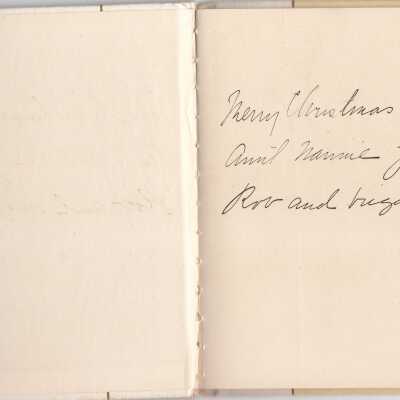 Merry Christmas
Aunt Nannie
Rob and